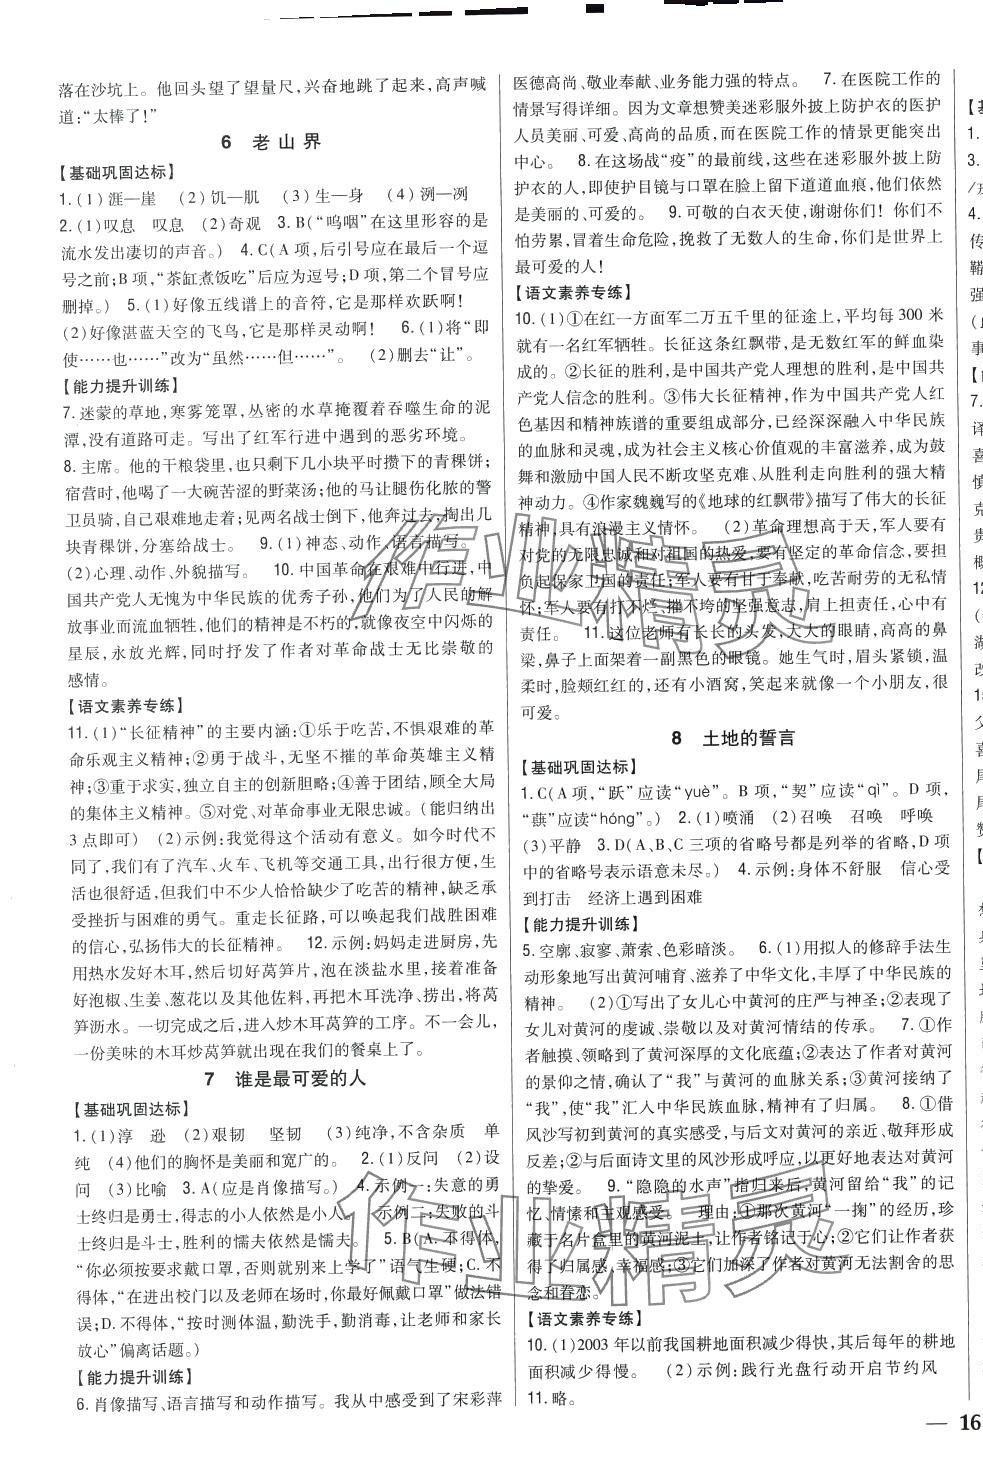 落在沙坑上。他回头望了望量尺，兴奋地跳了起来，高声喊
道：“太棒了！”
6 老山界
【基础巩固达标】
1.(1)涯—崖 (2)饥—肌 (3)生—身 (4)洌—冽
2.(1)叹息 叹息 (2)奇观 3.B(“呜咽”在这里形容的是
流水发出凄切的声音。) 4.C(A项，后引号应在最后一个逗
号之前；B项，“茶缸煮饭吃”后应为逗号；D项，第二个冒号应
删掉。) 5.(1)好像五线谱上的音符，它是那样欢跃啊！
(2)好像湛蓝天空的飞鸟，它是那样灵动啊！ 6.(1)将“即
使……也……”改为“虽然……但……”。 (2)删去“让”。
【能力提升训练】
7.迷蒙的草地，寒雾笼罩，丛密的水草掩覆着吞噬生命的泥
潭，没有道路可走。写出了红军行进中遇到的恶劣环境。
8.主席。他的干粮袋里，也只剩下几小块平时攒下的青稞饼；
宿营时，他喝了一大碗苦涩的野菜汤；他的马让腿伤化脓的警
卫员骑，自己艰难地走着；见两名战士倒下，他奔过去，掏出几
块青稞饼，分塞给战士。 9.(1)神态、动作、语言描写。
(2)心理、动作、外貌描写。 10.中国革命在艰难中行进，中
国共产党人无愧为中华民族的优秀子孙，他们为了人民的解
放事业而流血牺牲，他们的精神是不朽的，就像夜空中闪烁的
星辰，永放光辉，同时抒发了作者对革命战士无比崇敬的
感情。
【语文素养专练】
11.(1)“长征精神”的主要内涵：①乐于吃苦，不惧艰难的革
命乐观主义精神；②勇于战斗，无坚不摧的革命英雄主义精
神；③重于求实，独立自主的创新胆略；④善于团结，顾全大局
的集体主义精神。⑤对党、对革命事业无限忠诚。(能归纳出
3点即可) (2)示例：我觉得这个活动有意义。如今时代不
同了，我们有了汽车、火车、飞机等交通工具，出行很方便，生
活也很舒适，但我们中不少人恰恰缺少了吃苦的精神，缺乏承
受挫折与困难的勇气。重走长征路，可以唤起我们战胜困难
的信心，弘扬伟大的长征精神。 12.示例：妈妈走进厨房，先
用热水发好木耳，然后切好莴笋片，泡在淡盐水里，接着准备
好泡椒、生姜、葱花以及其他佐料，再把木耳洗净、捞出，将莴
笋沥水。一切完成之后，进入炒木耳莴笋的工序。不一会儿，
一份美味的木耳炒莴笋就出现在我们的餐桌上了。
7 谁是最可爱的人
【基础巩固达标】
1.(1)淳 逊 (2)艰韧 坚韧 (3)纯净，不含杂质 单
纯 (4)他们的胸怀是美丽和宽广的。 2.(1)反问 (2)设
问 (3)比喻 3.A(应是肖像描写。) 4.示例一：失意的勇
士终归是勇士，得志的小人依然是小人。 示例二：失败的斗
士终归是斗士，胜利的懦夫依然是懦夫。 5.B(A.不得体，
“你必须按要求戴口罩，否则就别来上学了”语气生硬；C.不
得体，“在进出校门以及老师在场时，你最好佩戴口罩”做法错
误；D.不得体，“按时测体温，勤洗手，勤消毒，让老师和家长
放心”偏离话题。)
【能力提升训练】
6.肖像描写、语言描写和动作描写。我从中感受到了宋彩萍
医德高尚、敬业奉献、业务能力强的特点。 7.在医院工作的
情景写得详细。因为文章想赞美迷彩服外披上防护衣的医护
人员美丽、可爱、高尚的品质，而在医院工作的情景更能突出
中心。 8.在这场战“疫”的最前线，这些在迷彩服外披上防
护衣的人，即使护目镜与口罩在脸上留下道道血痕，他们依然
是美丽的、可爱的。 9.可敬的白衣天使，谢谢你们！你们不
怕劳累，冒着生命危险，挽救了无数人的生命，你们是世界上
最可爱的人！
【语文素养专练】
10.(1)①在红一方面军二万五千里的征途上，平均每300米
就有一名红军牺牲。长征这条红飘带，是无数红军的鲜血染
成的。②长征的胜利，是中国共产党人理想的胜利，是中国共
产党人信念的胜利。③伟大长征精神，作为中国共产党人红
色基因和精神族谱的重要组成部分，已经深深融入中华民族
的血脉和灵魂，成为社会主义核心价值观的丰富滋养，成为鼓
舞和激励中国人民不断攻坚克难、从胜利走向胜利的强大精
神动力。④作家魏巍写的《地球的红飘带》描写了伟大的长征
精神，具有浪漫主义情怀。 (2)革命理想高于天，军人要有
对党的无限忠诚和对祖国的热爱，要有坚定的革命信念，要担
负起保家卫国的责任；军人要有甘于奉献，吃苦耐劳的无私情
怀；军人要有打不烂、摧不垮的坚强意志，肩上担责任，心中有
责任。 11.这位老师有长长的头发，大大的眼睛，高高的鼻
梁，鼻子上面架着一副黑色的眼镜。她生气时，眉头紧锁，温
柔时，脸颊红红的，还有小酒窝，笑起来就像一个小朋友，很
可爱。
8 土地的誓言
【基础巩固达标】
1.C(A项，“跃”应读“yuè”。B项，“契”应读“qì”。D项，
“蕻”应读“hóng”。) 2.(1)喷涌 (2)召唤 召唤 呼唤
(3)平静 3.D(A、B、C三项的省略号都是列举的省略号，D项
中的省略号表示语意未尽。) 4.示例：身体不舒服 信心受
到打击 经济上遇到困难
【能力提升训练】
5.空廓、寂寥、萧索、色彩暗淡。 6.(1)用拟人的修辞手法生
动形象地写出黄河哺育、滋养了中华文化，丰厚了中华民族的
精神。 (2)①写出了女儿心中黄河的庄严与神圣；②表现了
女儿对黄河的虔诚、崇敬以及对黄河情结的传承。 7.①作
者触摸、领略到了黄河深厚的文化底蕴；②表达了作者对黄河
的景仰之情，确认了“我”与黄河的血脉关系；③黄河接纳了
“我”，使“我”汇入中华民族血脉，精神有了归属。 8.①借
风沙写初到黄河的真实感受，与后文对黄河的亲近、敬拜形成
反差；②与后面诗文里的风沙形成呼应，以更好地表达对黄河
的挚爱。 9.“隐隐的水声”指归来后，黄河留给“我”的记
忆、情愫和主观感受。 理由：①那次黄河“一掬”的经历，珍
藏于名片盒里的黄河泥土，让作者铭记于心；②让作者获
得了归属感，幸福感；③它们加深了作者对黄河无法割舍的思
念和眷恋。
【语文素养专练】
10.(1)2003年以前我国耕地面积减少得快，其后每年的耕地
面积减少得慢。 (2)示例：践行光盘行动开启节约风
11.略。
— 16
作业精灵
作业精灵